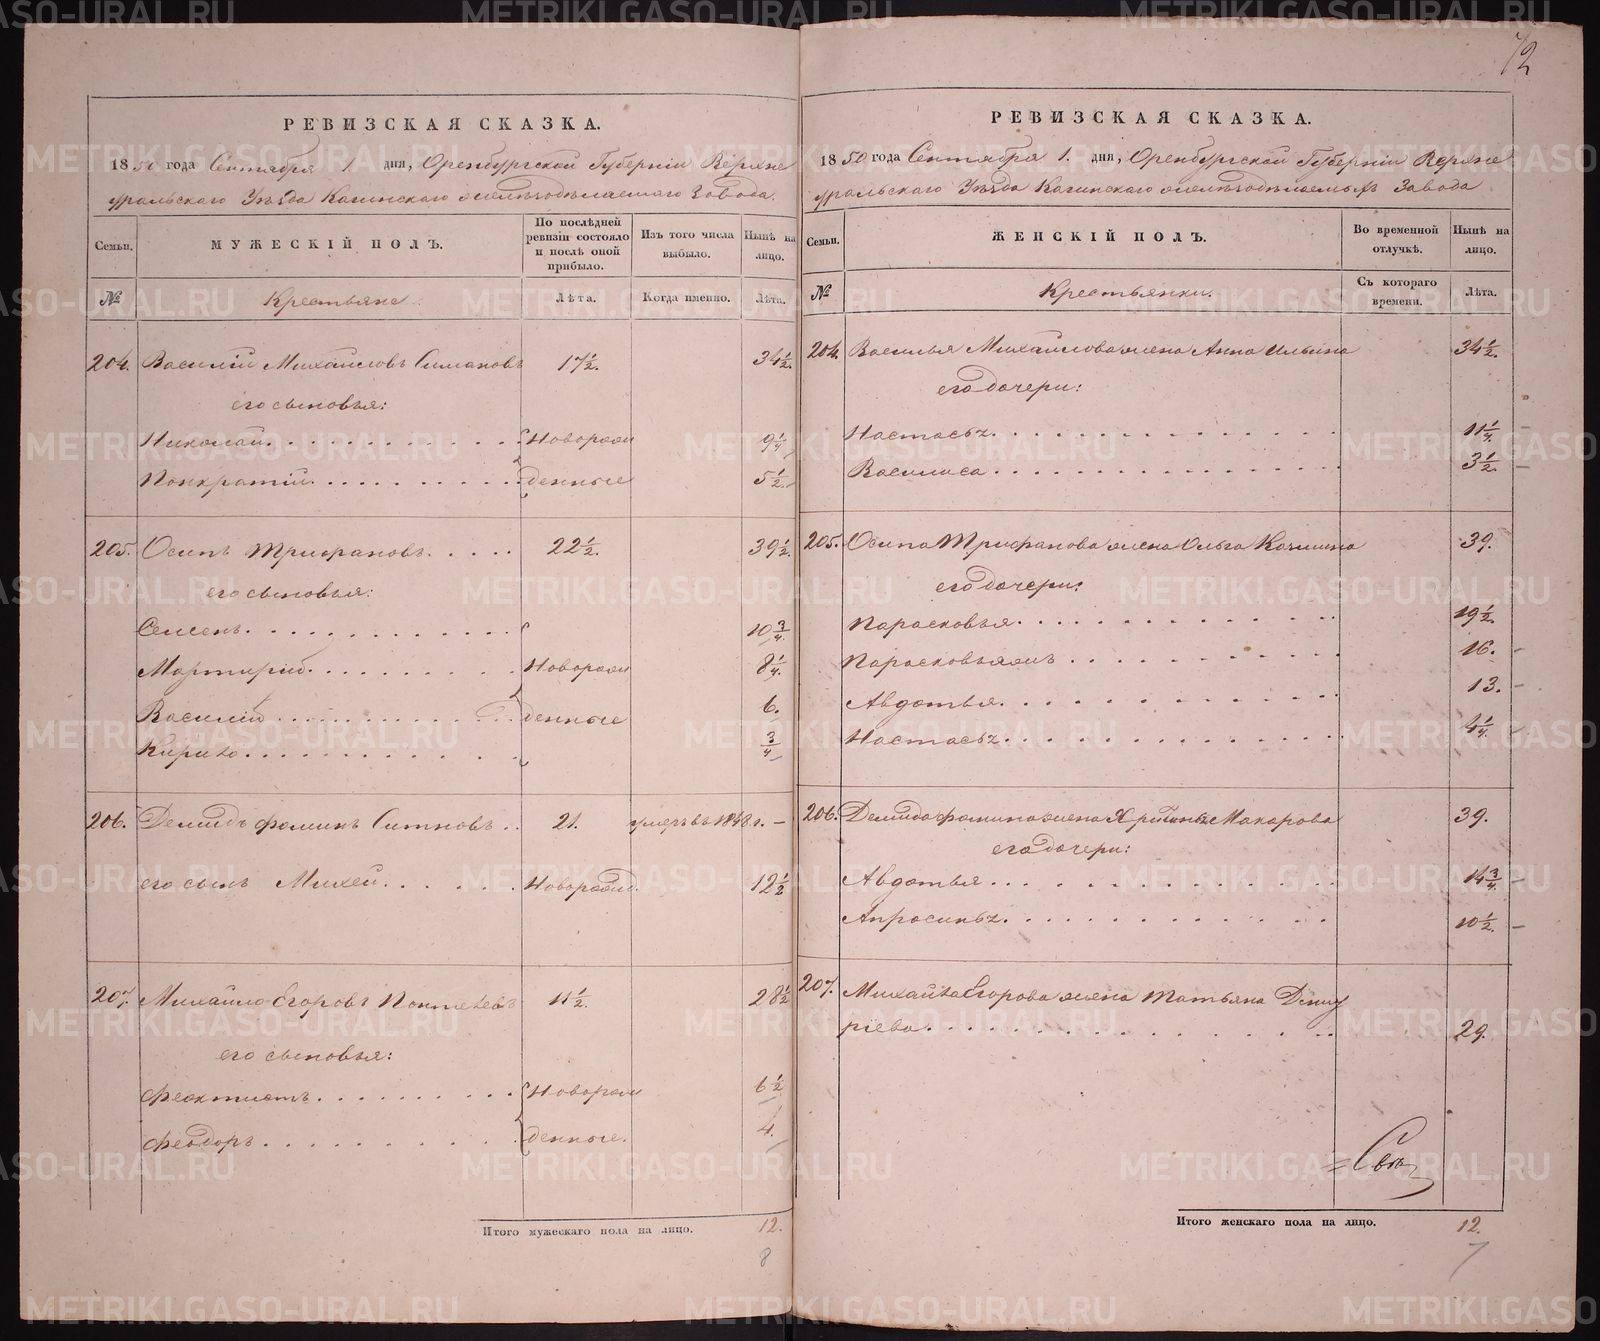 72
РЕВИЗСКАЯ СКАЗКА.
1850 года Сентября 1. дня, Оренбургской Губерніи Верхне
уральскаго Уѣзда Кагинскаго желѣзодѣлаемаго Завода.
Семьи.
МУЖЕСКІЙ ПОЛЪ.
По послѣдней ревизіи состояло и послѣ оной прибыло.
Изъ того числа выбыло.
Нынѣ на лицо.
№
Крестьяне.
Лѣта.
Когда именно.
Лѣта.
204. Василій Михайловъ Симаковъ 17½. 34½.
его сыновья:
Николай Новорож 9¼
Понкратій денные 5½
205. Осипъ Трифановъ 22½. 39½
его сыновья:
Семенъ 10¾
Мартирій Новорож 8¼
Василій денные 6.
Кирило ¾
206. Демидъ Фоминъ Ситновъ 21. умеръ въ 1848 г. –
его сынъ Михей Новорожд. 12½
207. Михайло Егоровъ 11½. 28½
его сыновья:
Феоктистъ Новорож 6½
Феодоръ денные. 4.
Итого мужескаго пола на лицо. 12.
8
РЕВИЗСКАЯ СКАЗКА.
1850 года Сентября 1. дня, Оренбургской Губерніи Верхне
уральскаго Уѣзда Кагинскаго желѣзодѣлаемаго Завода
Семьи.
ЖЕНСКІЙ ПОЛЪ.
Во временной отлучкѣ.
Нынѣ на лицо.
№
Крестьянки.
Съ котораго времени.
Лѣта.
204. Василья Михайлова жена Анна Ильина 34½.
его дочери:
Настасья 11¼.
Василиса 3½.
205. Осипа Трифанова жена Ольга Козмина 39.
его дочери:
Парасковья 19½.
Парасковья жъ 16.
Авдотья 13.
Настасья 4¼
206. Демида Фомина жена Макарова 39.
его дочери:
Авдотья 14¾
Апросинья 10½
207. Михайла Егорова жена Татьяна Дмит
ріева 29.
Итого женскаго пола на лицо. 12.
7
METRIKI.GASO-URAL.RU